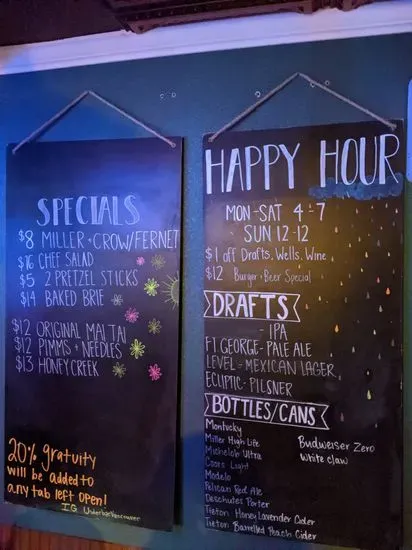 SPECIALS
$8 MILLER + CROW/FERNET
$16 CHEF SALAD
$5 2 PRETZEL STICKS
$14 BAKED BRIE
$12 ORIGINAL MAI TAI
$12 PIMMS + NEEDLES
$13 HONEY CREEK
20% gratuity
will be added to
any tab left open!
IG UnderbarVancouver
HAPPY HOUR
MON-SAT 4-7
SUN 12-12
$1 off Drafts, Wells, Wine
$12 Burger + Beer Special
DRAFTS
- IPA
F1 GEORGE - PALE ALE
LEVEL - MEXICAN LAGER
ECLIPTIC - PILSNER
BOTTLES/CANS
Montucky
Miller High Life
Michelob Ultra
Coors Light
Modelo
Pelican Red Ale
Deschutes Porter
Tieton Honey Lavender Cider
Tieton Barrelled Peach Cider
Budweiser Zero
White claw